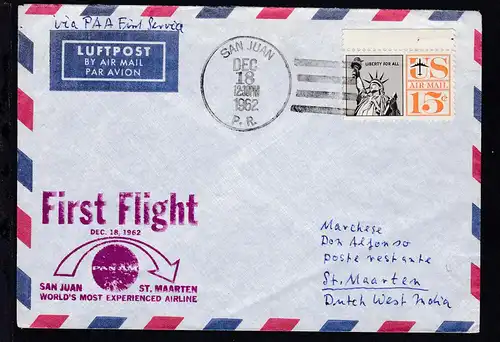 via PAA First Service
LUFTPOST
BY AIR MAIL
PAR AVION
SAN JUAN
DEC
18
1962
P. R.
LIBERTY FOR ALL
US
AIR MAIL
15¢
First Flight
DEC. 18, 1962
PAN AM
SAN JUAN ST. MAARTEN
WORLD'S MOST EXPERIENCED AIRLINE
Marchese
Don Alfonso
poste restante
St. Maarten
Dutch West India